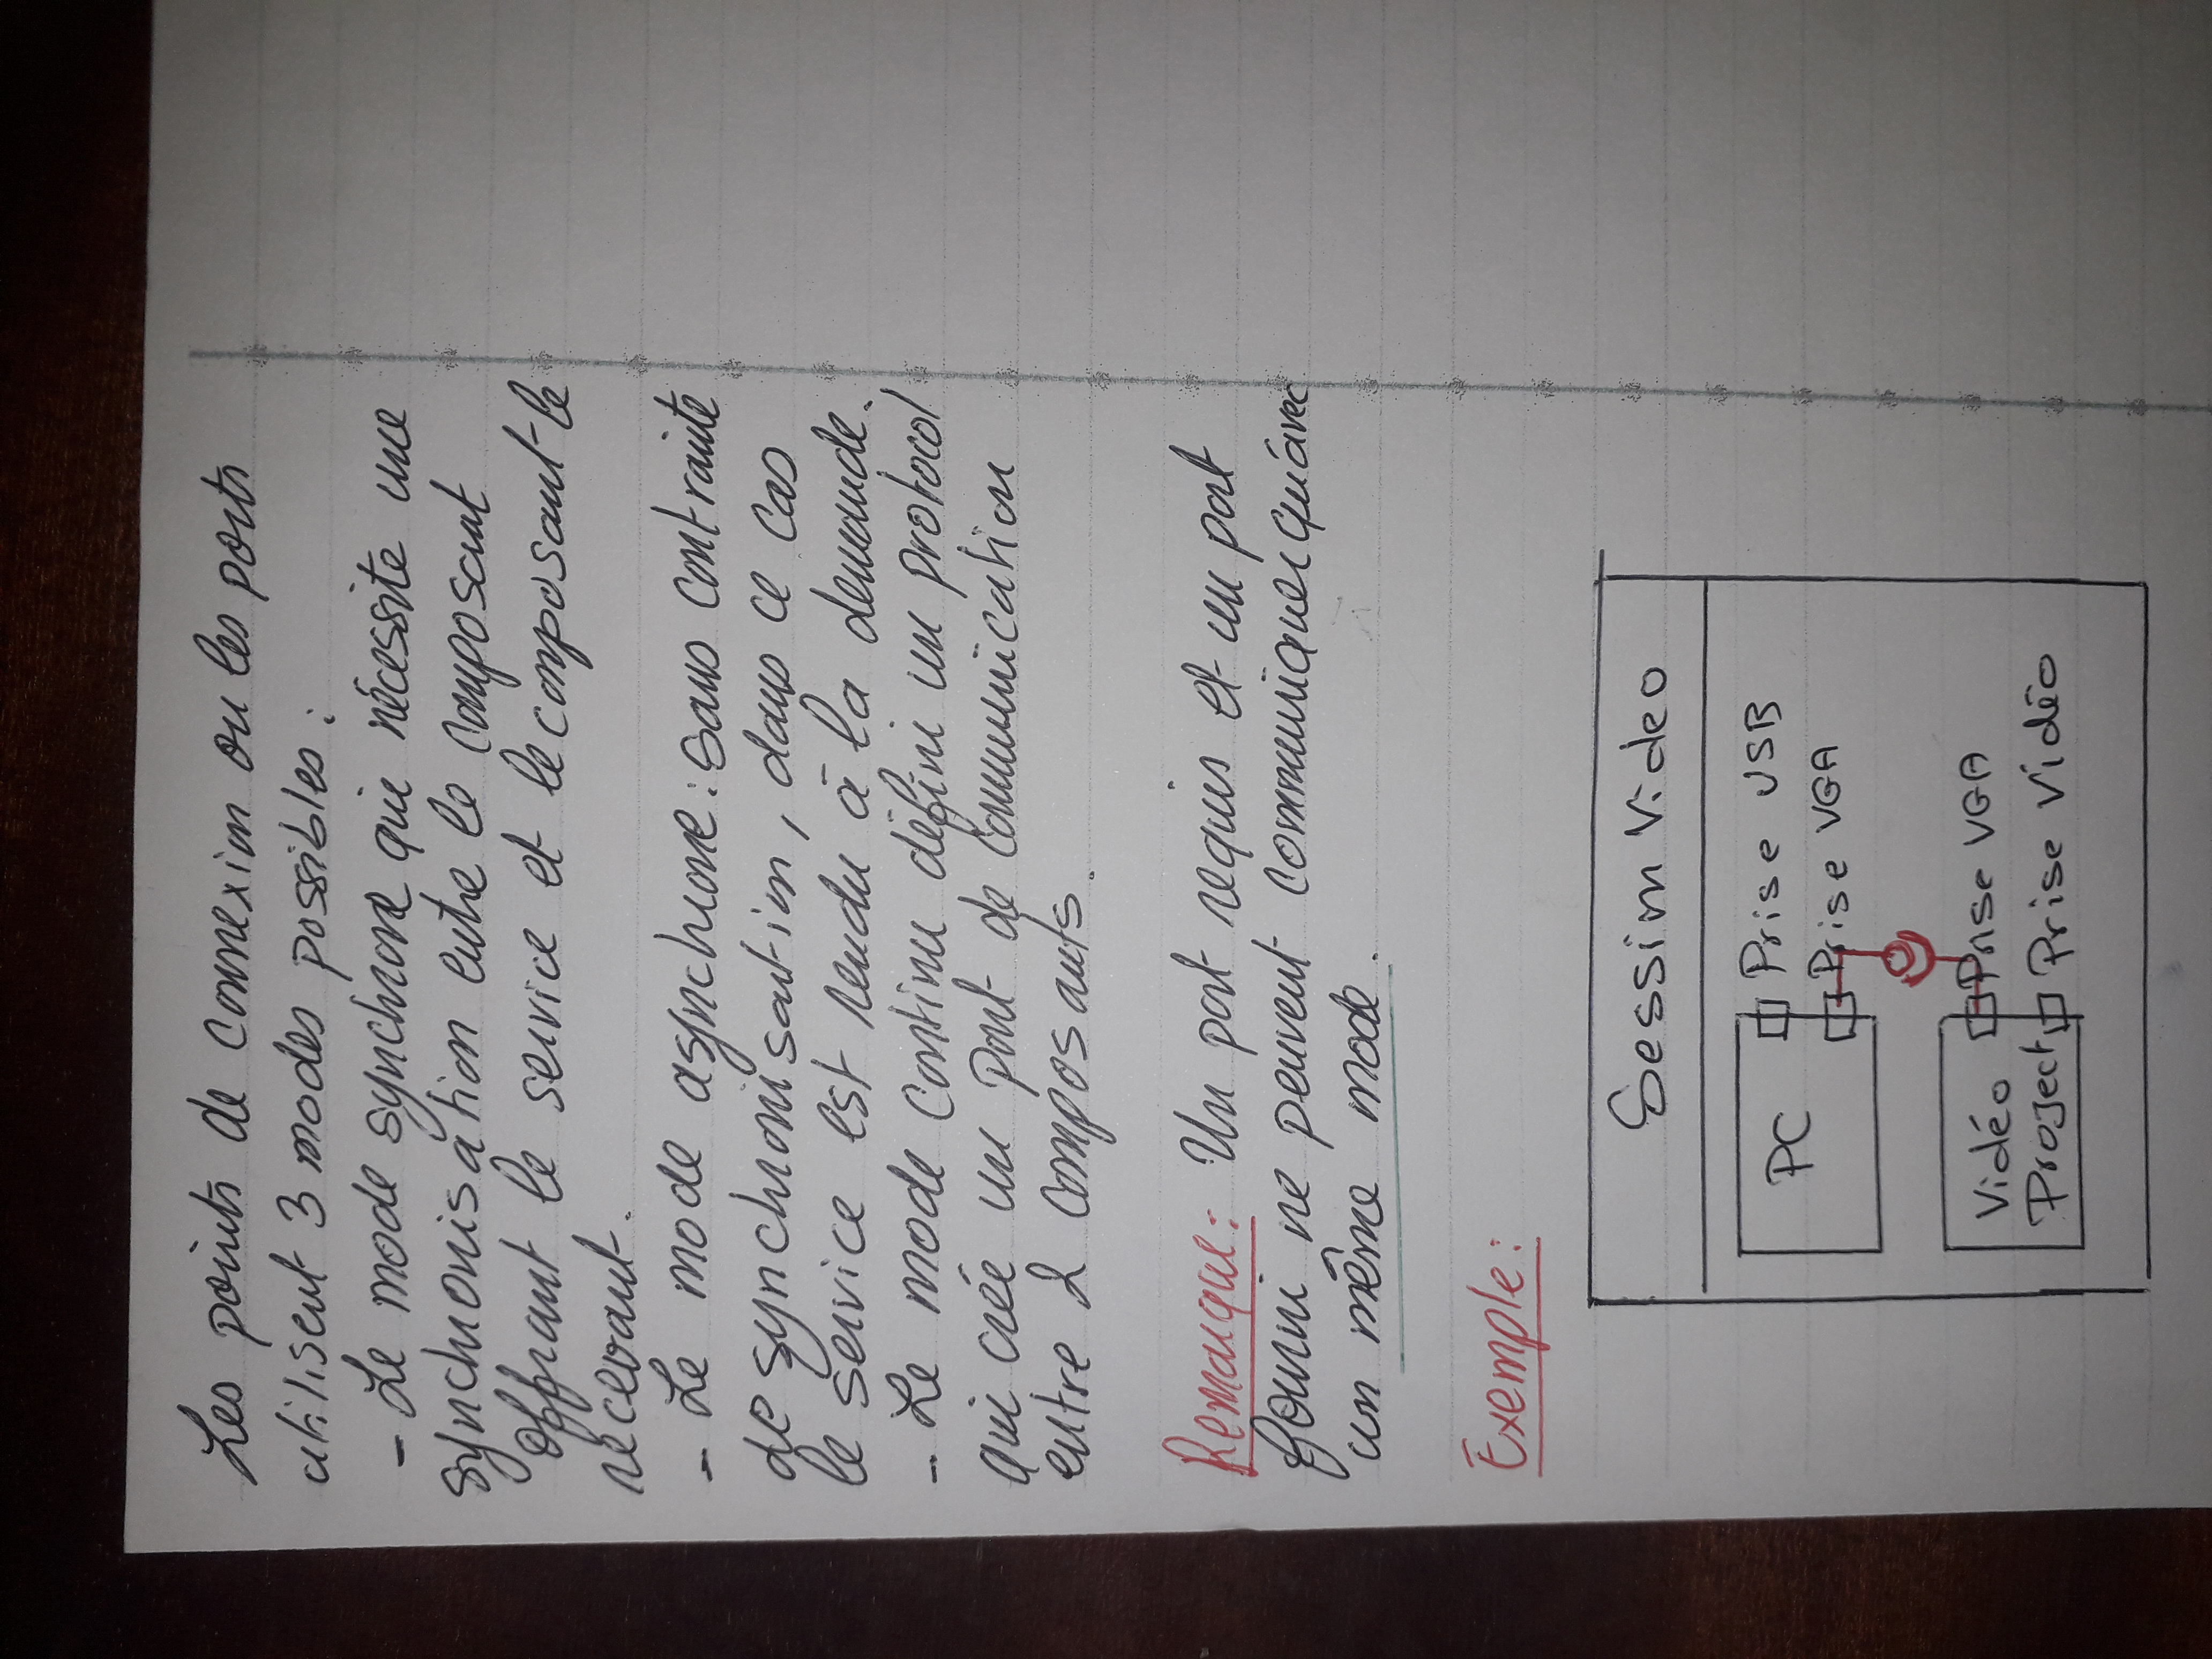 Les points de connexion ou les ports
utilisent 3 modes possibles :
- Le mode synchrone qui nécessite une
synchronisation entre le composant
offrant le service et le composant le
recevant.
- Le mode asynchrone : sans contrainte
de synchronisation, dans ce cas
le service est rendu à la demande.
- Le mode continu défini un protocol
qui crée un pont de communication
entre 2 composants.
Remarque : Un port requis et un port
fourni ne peuvent communiquer qu'avec
un même mode.
Exemple :
Session Video
PC
Prise USB
Prise VGA
Vidéo
Project
Prise VGA
Prise Vidéo